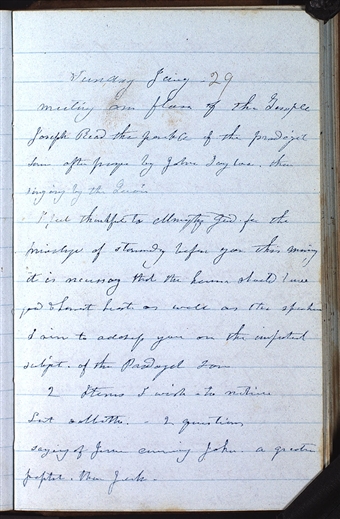 Sunday Jany 29
meeting on floor of the Temple
Joseph Read the parable of the prodigal
son after prayer by John Taylor. then
singing by the Quoir
I feel thankful to Almighty God for the
privilege of standing before you this morning
it is necessary that the hearers should have
good & honest hearts as well as the speaker
I aim to address you on the important
subject. of the Prodigal Son
2 Items I wish to notice
Last Sabbath. - 2 questions
saying of Jesus concerning John. a greater
prophet. than Jesus.